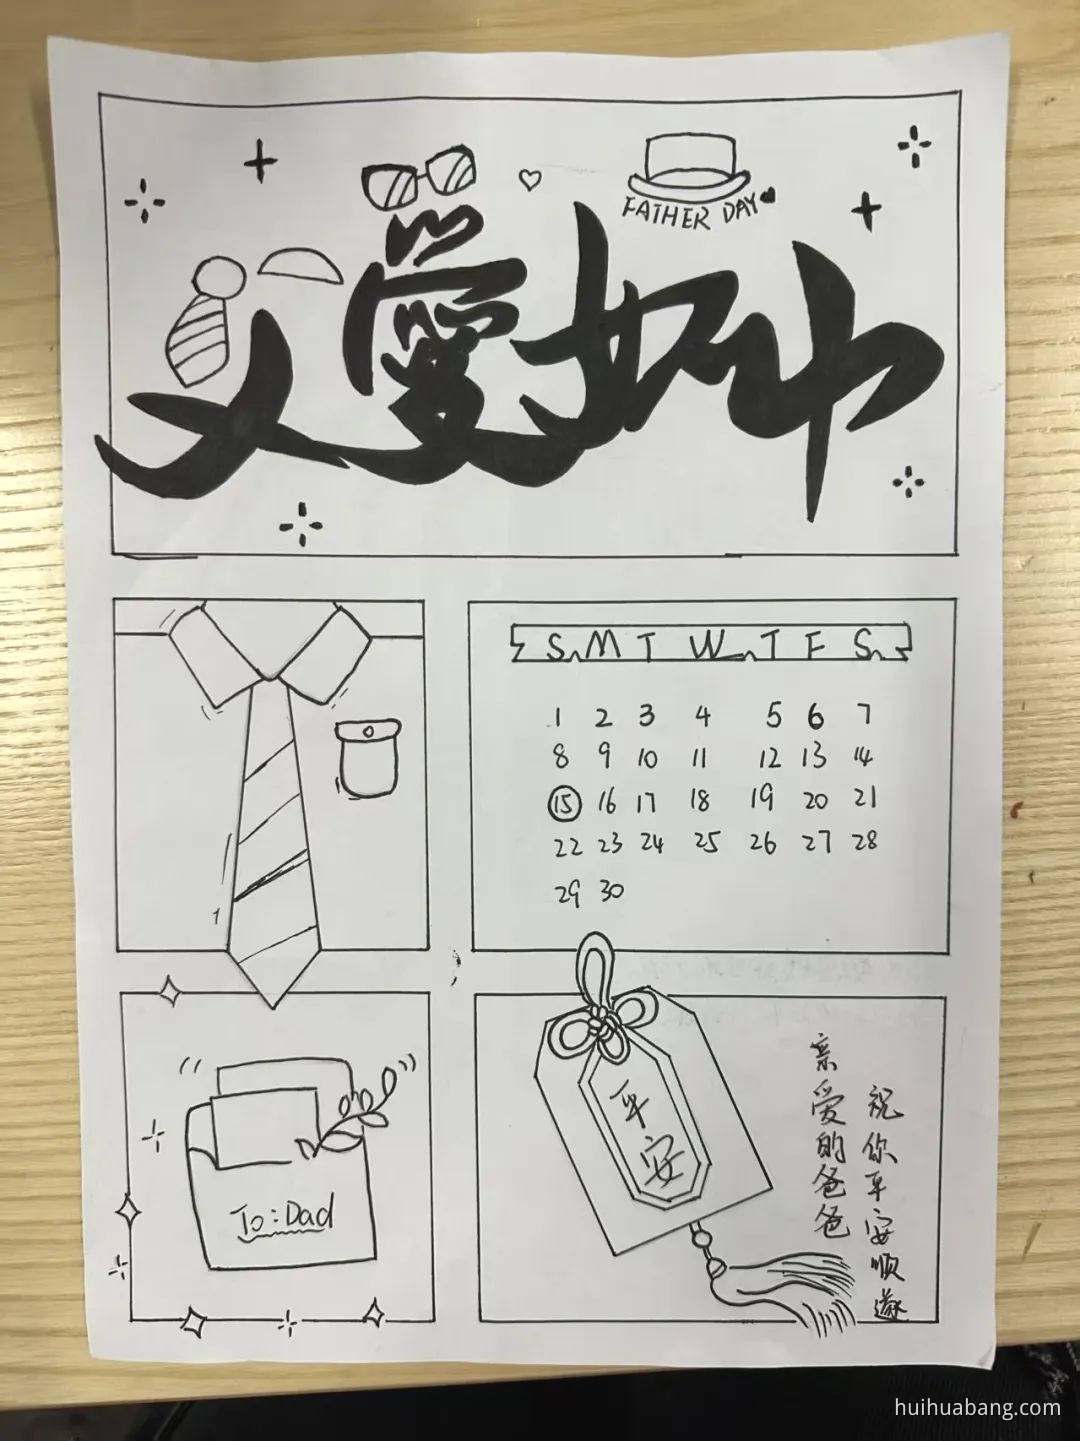 FATHER DAY
父爱如山
S M T W T F S
1 2 3 4 5 6 7
8 9 10 11 12 13 14
15 16 17 18 19 20 21
22 23 24 25 26 27 28
29 30
To: Dad
平安
亲爱的爸爸
祝你平安顺遂
huihuabang.com